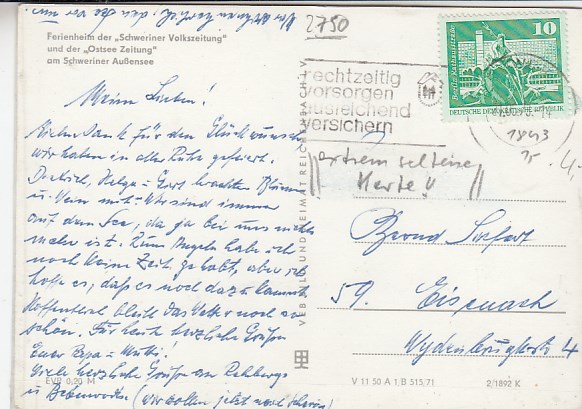 2750
Ferienheim der „Schweriner Volkszeitung"
und der „Ostsee Zeitung"
am Schweriner Außensee
Meine Lieben!
Vielen Dank für den Glückwunsch
wir haben in aller Ruhe gefeiert.
Dietrich, Helga u. Gert brachten Blumen
u. Wein mit. Wir sind immer
auf dem See, da ja bei uns nichts
mehr ist. Zum Angeln habe ich
noch keine Zeit gehabt, aber ich
hoffe es, daß es noch dazu kommt
Hoffentlich bleibt das Wetter noch so
schön. Für heute herzliche Grüße
Euer Papa u. Mutti!
Viele herzliche Grüße an Rehbergs
u. (wir wollen jetzt noch
EVP 0,20 M
VEB BILD UND HEIMAT REICHENBACH I. V.
rechtzeitig
vorsorgen
ausreichend
versichern
10
Berlin, Rathausstraße
DEUTSCHE DEMOKRATISCHE REPUBLIK
1893
extrem seltene
Karte!!
Bernd Siefert
59. Eisenach
4
V 11 50 A 1 B 515/71
2/1892 K